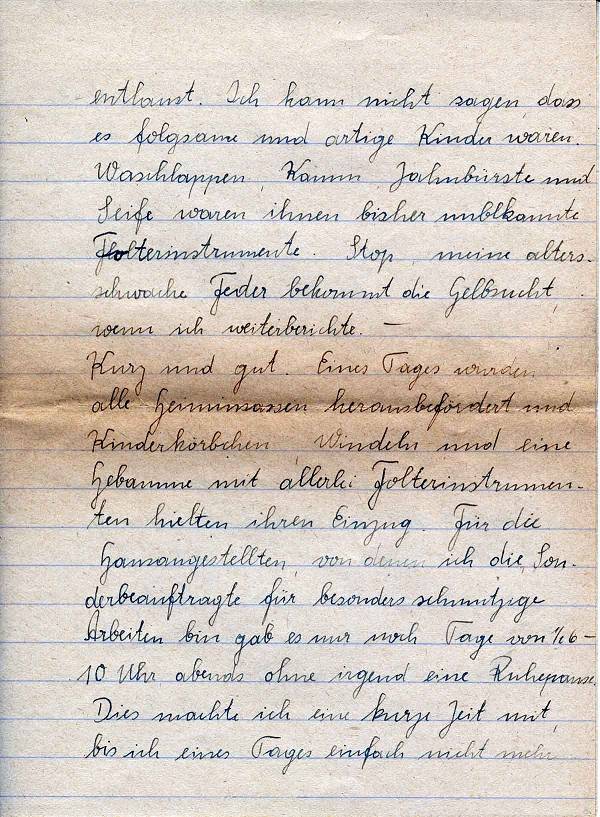 entlaust. Ich kann nicht sagen, dass
es folgsame und artige Kinder waren.
Waschlappen, Kamm, Zahnbürste und
Seife waren ihnen bisher unbekannte
Folterinstrumente. Stop, meine alters-
schwache Feder bekommt die Gelbsucht,
wenn ich weiterberichte. —
Kurz und gut. Eines Tages wurden
alle Heiminsassen herausbefördert und
Kinderkörbchen, Windeln und eine
Hebamme mit allerlei Folterinstrumen-
ten hielten ihren Einzug. Für die
Hausangestellten, von denen ich die Son-
derbeauftragte für besonders schmutzige
Arbeiten bin gab es nur noch Tage von ½6 —
10 Uhr abends ohne irgend eine Ruhepause.
Dies machte ich eine kurze Zeit mit,
bis ich eines Tages einfach nicht mehr